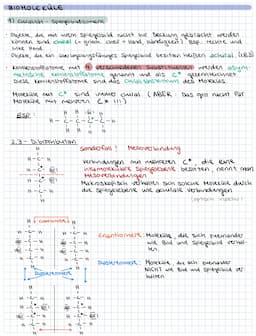 BIOMOLEKÜLE
1) Chiralität - Spiegelbildisomerie
Objekte, die mit ihrem Spiegelbild nicht zur Deckung gebracht werden
können sind chiral (= griech. cheir = Hand, Händigkeit) Bsp.: rechte und
linke Hand
Objekte, die ein deckungsgleiches Spiegelbild besitzen heißen achiral.
Kohlenstoffatome mit 4 verschiedenen Substituenten werden asym-
metrische Kohlenstoffatome genannt und als C* gekennzeichnet
diese Kohlenstoffatome sind das Chiralitätszentrum des Moleküls.
Moleküle mit C* sind immer chiral (ABER: Das gilt nicht für
Moleküle mit mehreren C* !!!)
BSP:
2,3 - Dibrombutan
Sonderfall: Mesoverbindung
Verbindungen mit mehreren C*, die eine
intramolekulare Spiegelebene besitzen, nennt man
Mesoverbindungen
Makroskopisch verhalten sich solche Moleküle durch
die Spiegelebene wie achirale Verbindungen
(optisch inaktiv)
Enantiomere
Enantiomere: Moleküle, die sich zueinander
wie Bild und Spiegelbild verhal-
ten
Diastereomere
Diastereomere: Moleküle, die sich zueinander
NICHT wie Bild und Spiegelbild ver-
halten